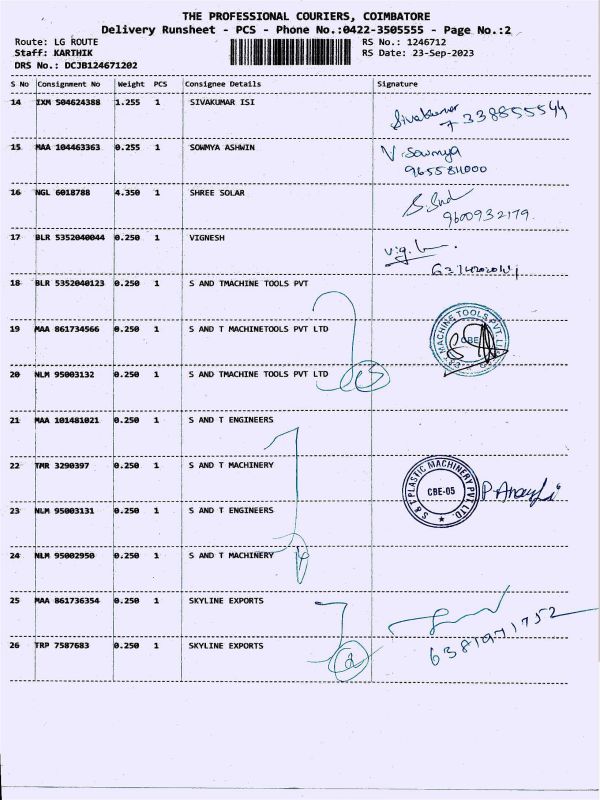 THE PROFESSIONAL COURIERS, COIMBATORE
Delivery Runsheet - PCS - Phone No.:0422-3505555 - Page No.:2
Route: LG ROUTE RS No.: 1246712
Staff: KARTHIK RS Date: 23-Sep-2023
DRS No.: DCJB124671202
S No Consignment No Weight PCS Consignee Details Signature
14 IXM 504624388 1.255 1 SIVAKUMAR ISI
Sivakumar
7338855544
15 MAA 104463363 0.255 1 SOWMYA ASHWIN
V. Sowmya
9655811000
16 NGL 6018788 4.350 1 SHREE SOLAR
9600932179.
17 BLR 5352040044 0.250 1 VIGNESH
18 BLR 5352040123 0.250 1 S AND TMACHINE TOOLS PVT
19 MAA 861734566 0.250 1 S AND T MACHINETOOLS PVT LTD
MACHINE TOOLS PVT. LTD.
CBE
20 NLM 95003132 0.250 1 S AND TMACHINE TOOLS PVT LTD
21 MAA 101481021 0.250 1 S AND T ENGINEERS
22 TMR 3290397 0.250 1 S AND T MACHINERY
S & T PLASTIC MACHINERY PVT. LTD.
CBE-05
23 NLM 95003131 0.250 1 S AND T ENGINEERS
24 NLM 95002950 0.250 1 S AND T MACHINERY
25 MAA 861736354 0.250 1 SKYLINE EXPORTS
6381971752
26 TRP 7587683 0.250 1 SKYLINE EXPORTS
2